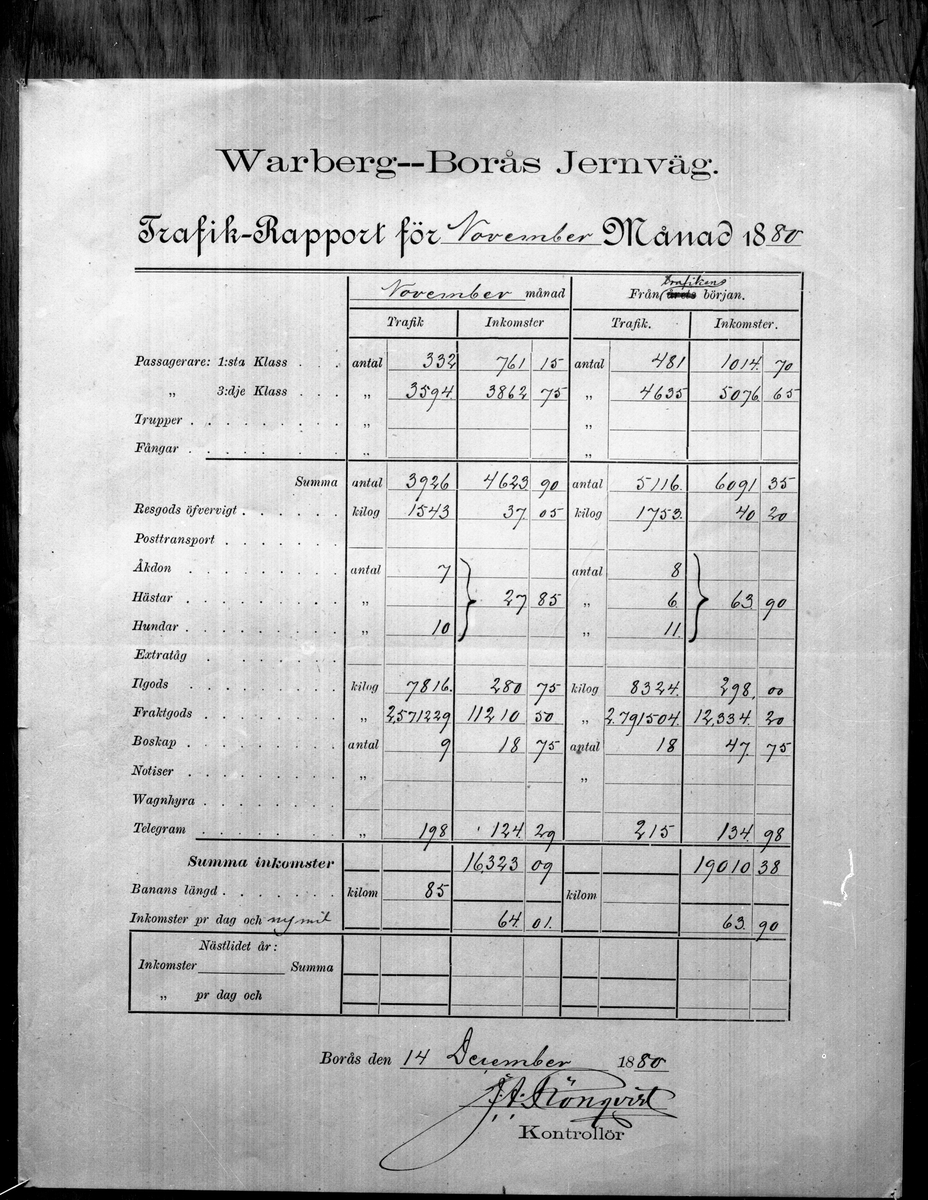 Warberg--Borås Jernväg.
Trafik-Rapport för November Månad 1880
November månad Från Trafikens årets början.
Trafik Inkomster Trafik. Inkomster.
Passagerare: 1:sta Klass . . . antal 332 761 15 antal 481 1014. 70
„ 3:dje Klass . . . „ 3594. 3862 75 „ 4635 5076. 65
Trupper . . . . . . . . . „ „
Fångar . „ „
Summa antal 3926 4623 90 antal 5116. 6091 35
Resgods öfvervigt . . . . . . kilog 1543 37. 05 kilog 1753. 40 20
Posttransport . . . . . . .
Åkdon . . . . . . . . . antal 7 antal 8
Hästar . . . . . . . . . „ 27 85 „ 6. 63 90
Hundar . . . . . . . . . „ 10 „ 11.
Extratåg . . . . . . . .
Ilgods . . . . . . . . . kilog 7816. 280 75 kilog 8324. 298. 00
Fraktgods . . . . . . . . „ 2,571229 11210 50 „ 2.791504. 12,334. 20
Boskap . . . . . . . . . antal 9 18 75 antal 18 47. 75
Notiser . . . . . . . . . „ „
Wagnhyra . . . . . . . .
Telegram . . . . . . . . „ 198 124. 29 215 134. 98
Summa inkomster 16,323 09 19010 38
Banans längd . . . . . . . kilom 85 kilom
Inkomster pr dag och nymil 64. 01. 63. 90
Nästlidet år:
Inkomster Summa
„ pr dag och
Borås den 14 December 1880
J. A. Rönqvist
Kontrollör